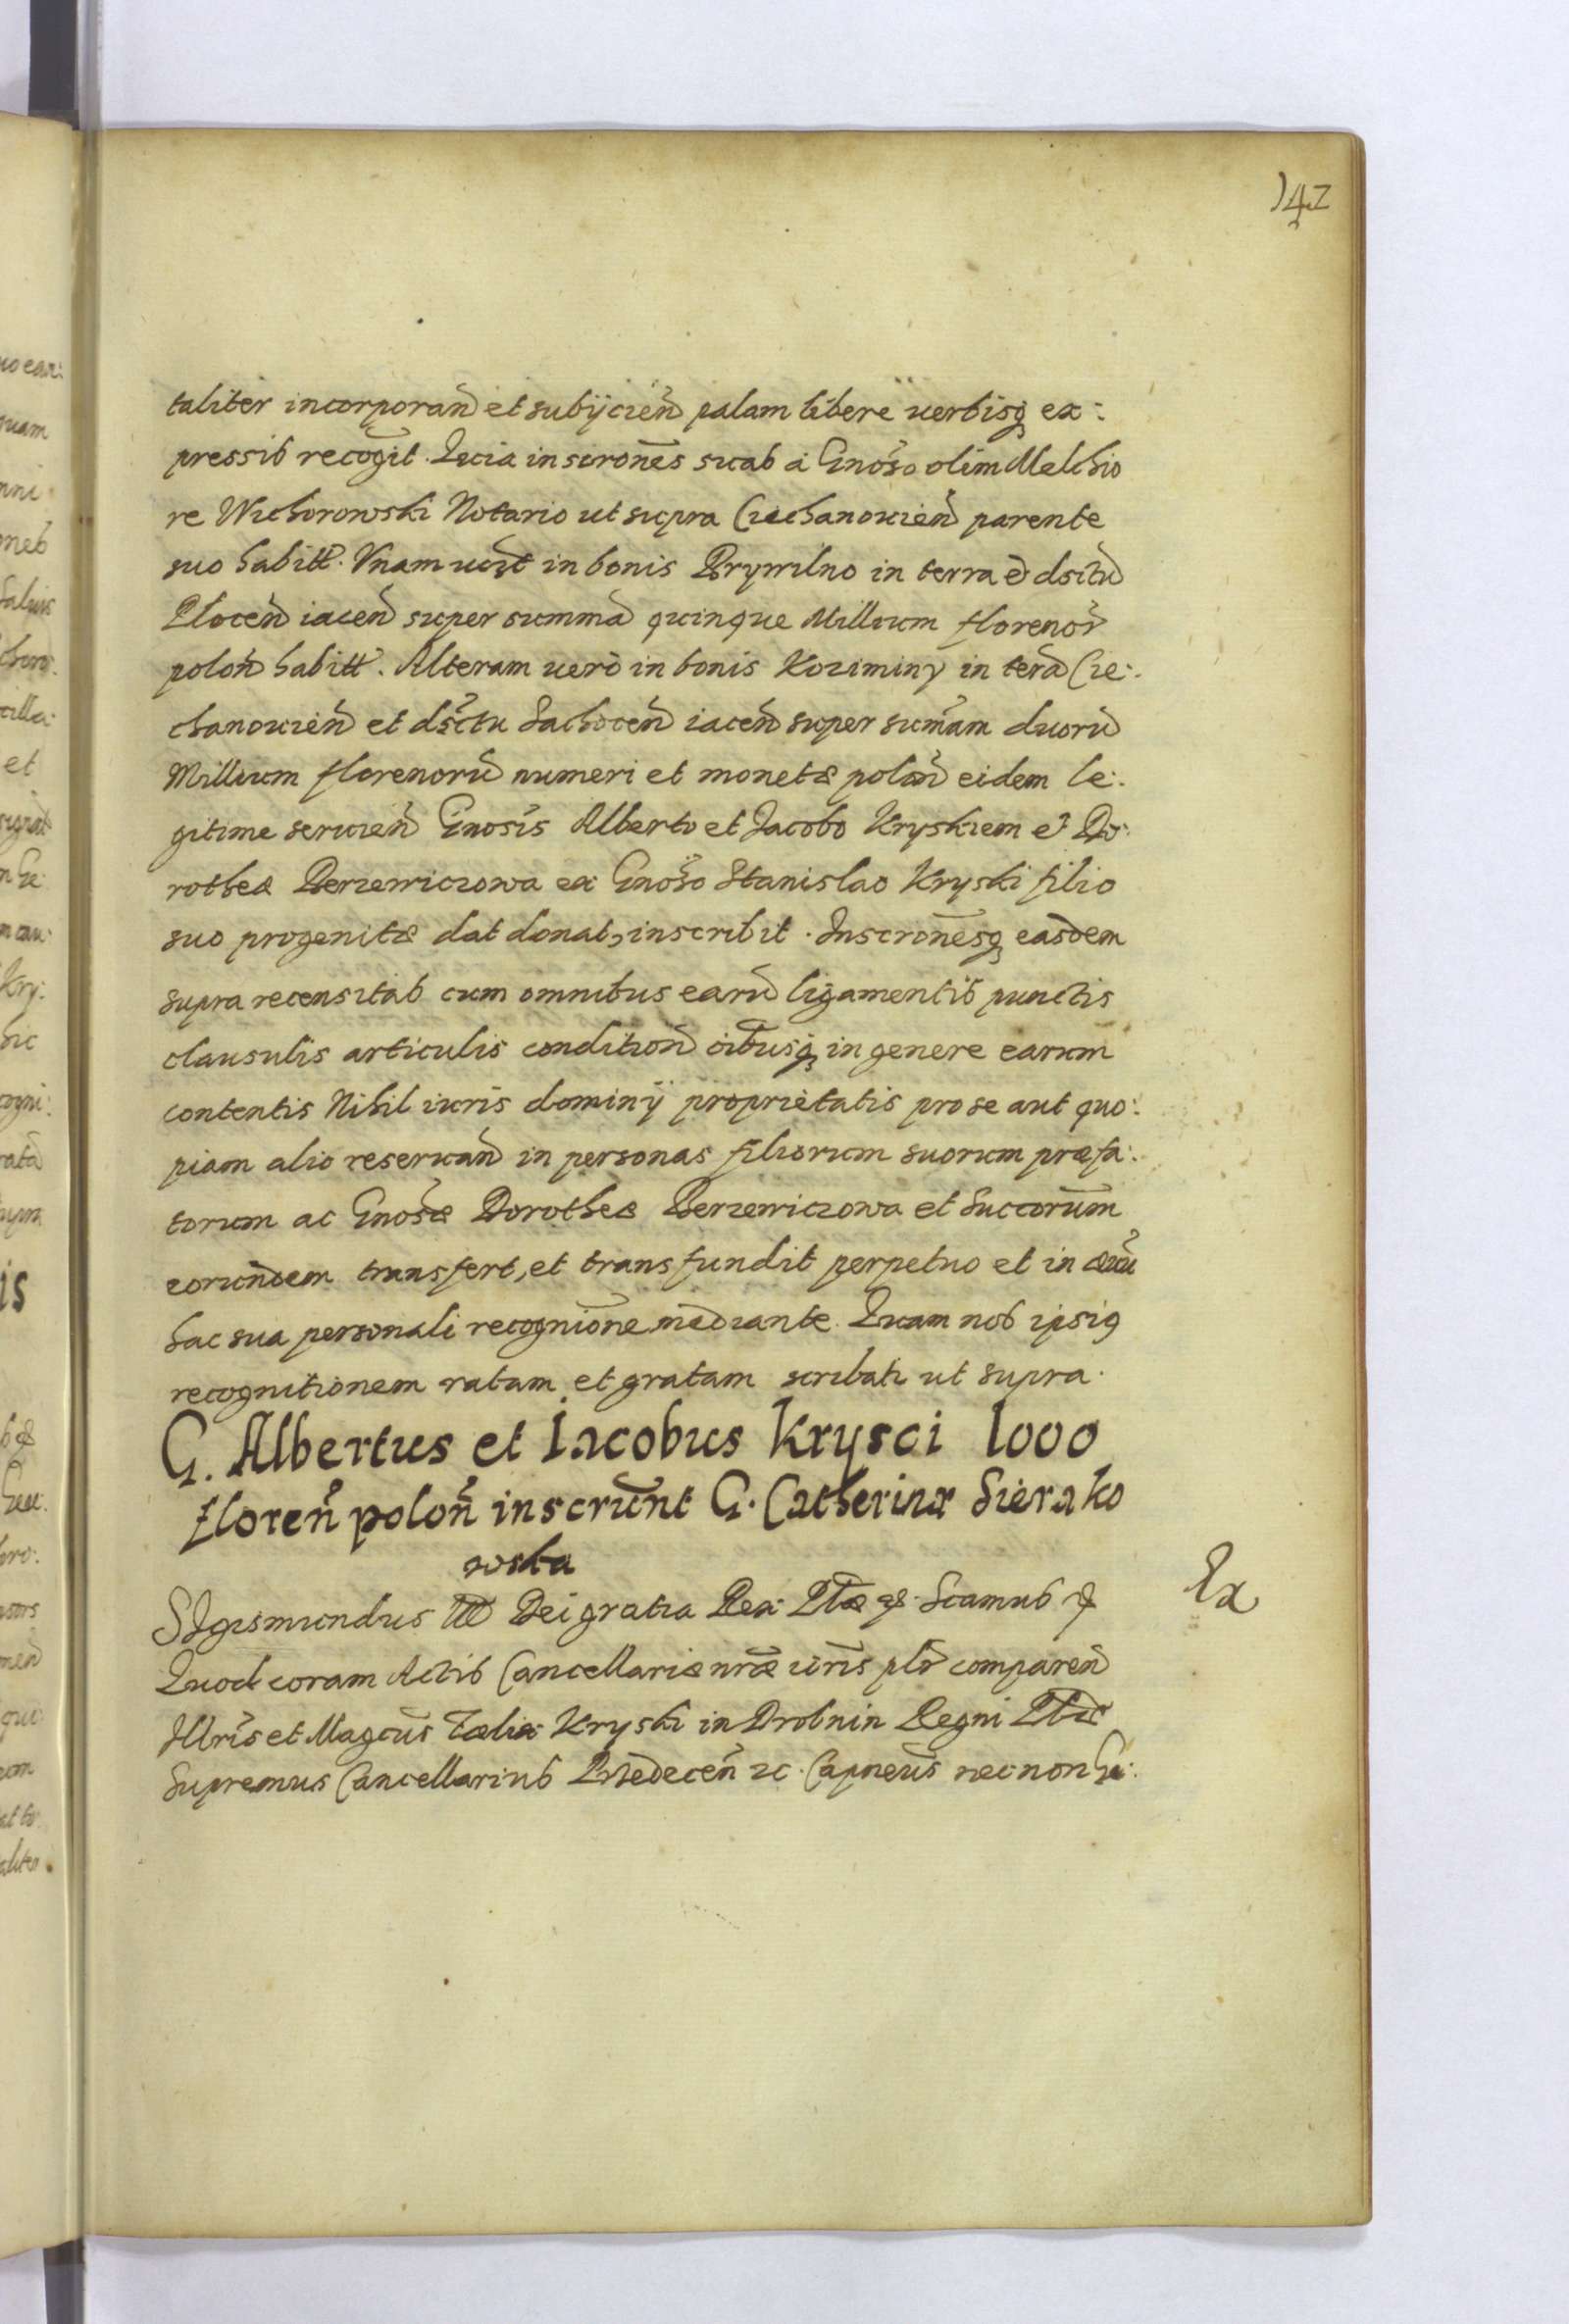 142
taliter incorporand et subijcien palam libere uerbisq ex:
pressis recogit. Quia inscrones suas a Gnoso olim Melchio
re Wichorowski Notario ut supra Ciechanouien parente
suo habitt. Vnam uczt in bonis Brywilno in terra et dsitu
Plocen iacen super summa quinque Millium florenor
polon habitt. Alteram uero in bonis Koziminy in tera Cie:
chanouien et dsctu Sachocen iacen super sumam duoru
Millium florenoru numeri et monetæ polon eidem le:
gitime seruien Gnosis Alberto et Jacobo Kryskiem et Do:
rotheæ Berzewiczowa ex Gnoso Stanislao Kryski filio
suo progenitæ dat donat, inscribit. Inscronesq easdem
supra recensitas cum omnibus earu ligamentis punctis
clausulis articulis condition oibusq in genere earum
contentis Nihil iuris dominij proprietatis pro se aut quo:
piam alio reseruan in personas filiorum suorum præfa:
torum ac Gnosæ Dorotheæ Berzewiczowa et Succorum
eorundem transfert, et transfundit perpetuo et in æuu
hac sua personali recognione mediante. Quam nos ipsig
recognitionem ratam et gratam scribati ut supra.
G. Albertus et Iacobus Krysci 1000
floren polon inscrunt G. Catherinæ Sierako
wska
SIgismundus III Dei gratia Rex Plæ &. Scamus &
Ex
Quod coram Actis Cancellariæ nræ uris plr comparen
Illris et Magcus Fælix Kryski in Drobnin Regni Plæ
Supremus Cancellarius Przedecen zc. Capneus necnon Ge: